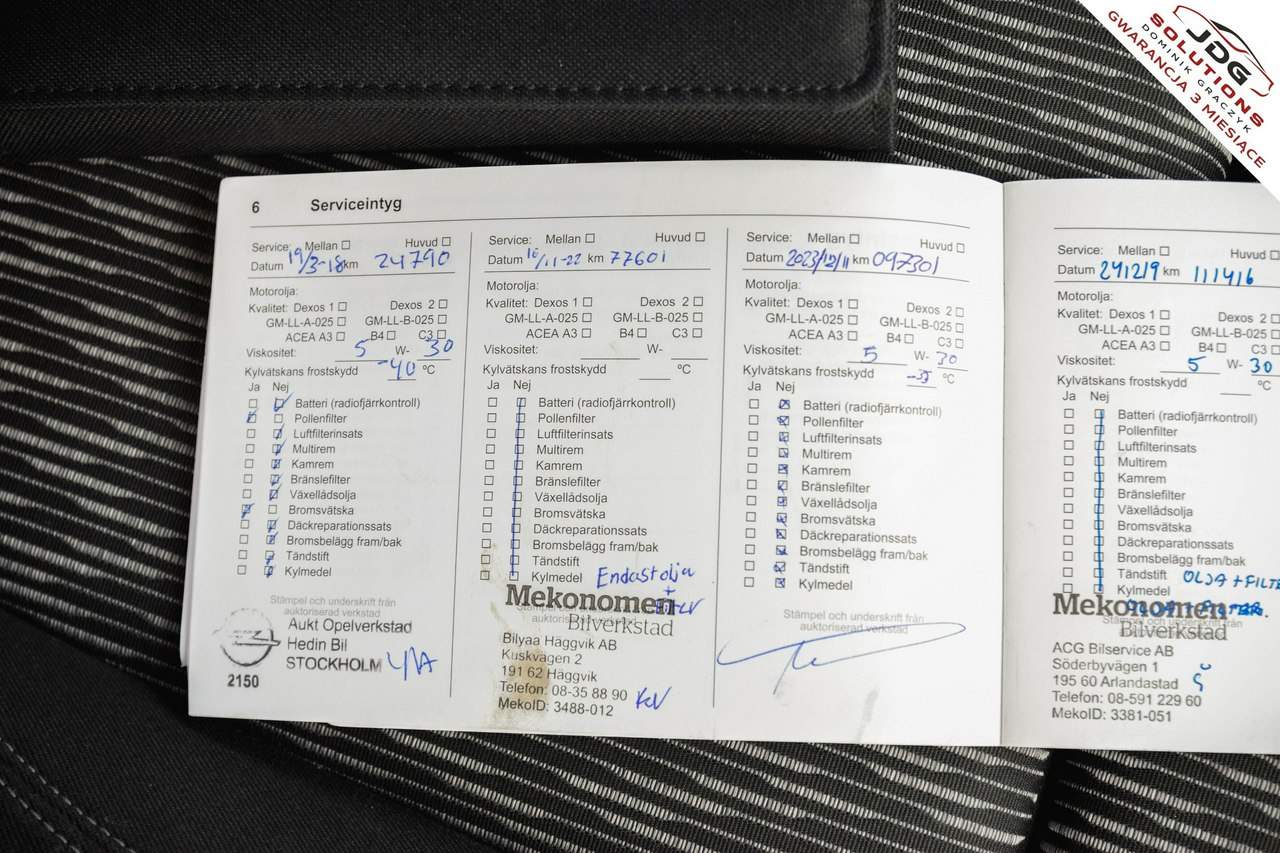 JDG
SOLUTIONS
DOMINIK GRACZYK
GWARANCJA 3 MIESIĄCE
6 Serviceintyg
Service: Mellan ☐ Huvud ☐
Datum 19/3-18 km 24790
Motorolja:
Kvalitet: Dexos 1 ☐ Dexos 2 ☐
GM-LL-A-025 ☐ GM-LL-B-025 ☐
ACEA A3 ☐ B4 ☐ C3 ☐
Viskositet: 5 W- 30
Kylvätskans frostskydd -40 °C
Ja Nej
Batteri (radiofjärrkontroll)
Pollenfilter
Luftfilterinsats
Multirem
Kamrem
Bränslefilter
Växellådsolja
Bromsvätska
Däckreparationssats
Bromsbelägg fram/bak
Tändstift
Kylmedel
Stämpel och underskrift från
auktoriserad verkstad
Aukt Opelverkstad
Hedin Bil
STOCKHOLM
2150
Service: Mellan ☐ Huvud ☐
Datum 16/11-22 km 77601
Motorolja:
Kvalitet: Dexos 1 ☐ Dexos 2 ☐
GM-LL-A-025 ☐ GM-LL-B-025 ☐
ACEA A3 ☐ B4 ☐ C3 ☐
Viskositet: W-
Kylvätskans frostskydd °C
Ja Nej
Batteri (radiofjärrkontroll)
Pollenfilter
Luftfilterinsats
Multirem
Kamrem
Bränslefilter
Växellådsolja
Bromsvätska
Däckreparationssats
Bromsbelägg fram/bak
Tändstift
Kylmedel Endast olja
+
Mekonomen
Stämpel och underskrift från
auktoriserad verkstad
Bilverkstad
Bilyaa Häggvik AB
Kuskvägen 2
191 62 Häggvik
Telefon: 08-35 88 90 KV
MekoID: 3488-012
Service: Mellan ☐ Huvud ☐
Datum 2023/12/11 km 097301
Motorolja:
Kvalitet: Dexos 1 ☐ Dexos 2 ☐
GM-LL-A-025 ☐ GM-LL-B-025 ☐
ACEA A3 ☐ B4 ☐ C3 ☐
Viskositet: 5 W- 30
Kylvätskans frostskydd -35 °C
Ja Nej
Batteri (radiofjärrkontroll)
Pollenfilter
Luftfilterinsats
Multirem
Kamrem
Bränslefilter
Växellådsolja
Bromsvätska
Däckreparationssats
Bromsbelägg fram/bak
Tändstift
Kylmedel
Stämpel och underskrift från
auktoriserad verkstad
Service: Mellan ☐ Huvud ☐
Datum 241219 km 111416
Motorolja:
Kvalitet: Dexos 1 ☐ Dexos 2 ☐
GM-LL-A-025 ☐ GM-LL-B-025 ☐
ACEA A3 ☐ B4 ☐ C3 ☐
Viskositet: 5 W- 30
Kylvätskans frostskydd °C
Ja Nej
Batteri (radiofjärrkontroll)
Pollenfilter
Luftfilterinsats
Multirem
Kamrem
Bränslefilter
Växellådsolja
Bromsvätska
Däckreparationssats
Bromsbelägg fram/bak
Tändstift OLJA + FILTE
Kylmedel
Mekonomen
Bilverkstad
ACG Bilservice AB
Söderbyvägen 1
195 60 Arlandastad
Telefon: 08-591 229 60
MekoID: 3381-051